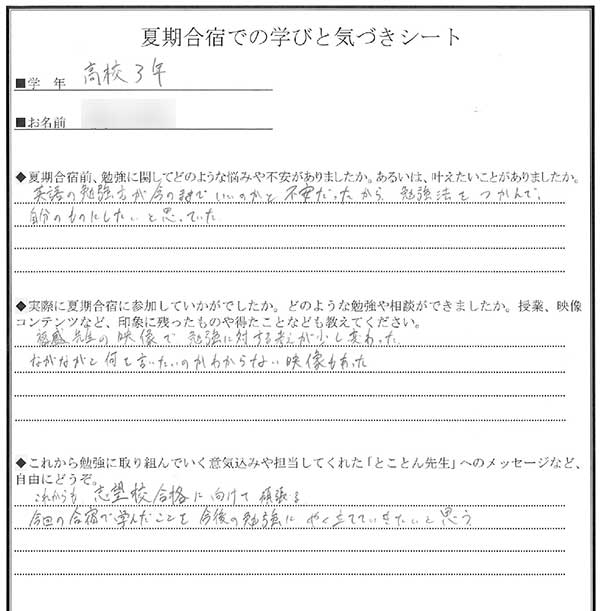 夏期合宿での学びと気づきシート
■学　年　高校3年
■お名前
◆夏期合宿前、勉強に関してどのような悩みや不安がありましたか。あるいは、叶えたいことがありましたか。
英語の勉強方が今のままでいいのかと不安だったから 勉強法をつかんで、
自分のものにしたいと思っていた
◆実際に夏期合宿に参加していかがでしたか。どのような勉強や相談ができましたか。授業、映像
コンテンツなど、印象に残ったものや得たことなども教えてください。
先生の映像で 勉強に対する考えが少し変わった
ながながと何を言いたいのかわからない映像もあった
◆これから勉強に取り組んでいく意気込みや担当してくれた「とことん先生」へのメッセージなど、
自由にどうぞ。
これからも 志望校合格に向けて頑張る
今回の合宿で学んだことを今後の勉強に やく立てていきたいと思う